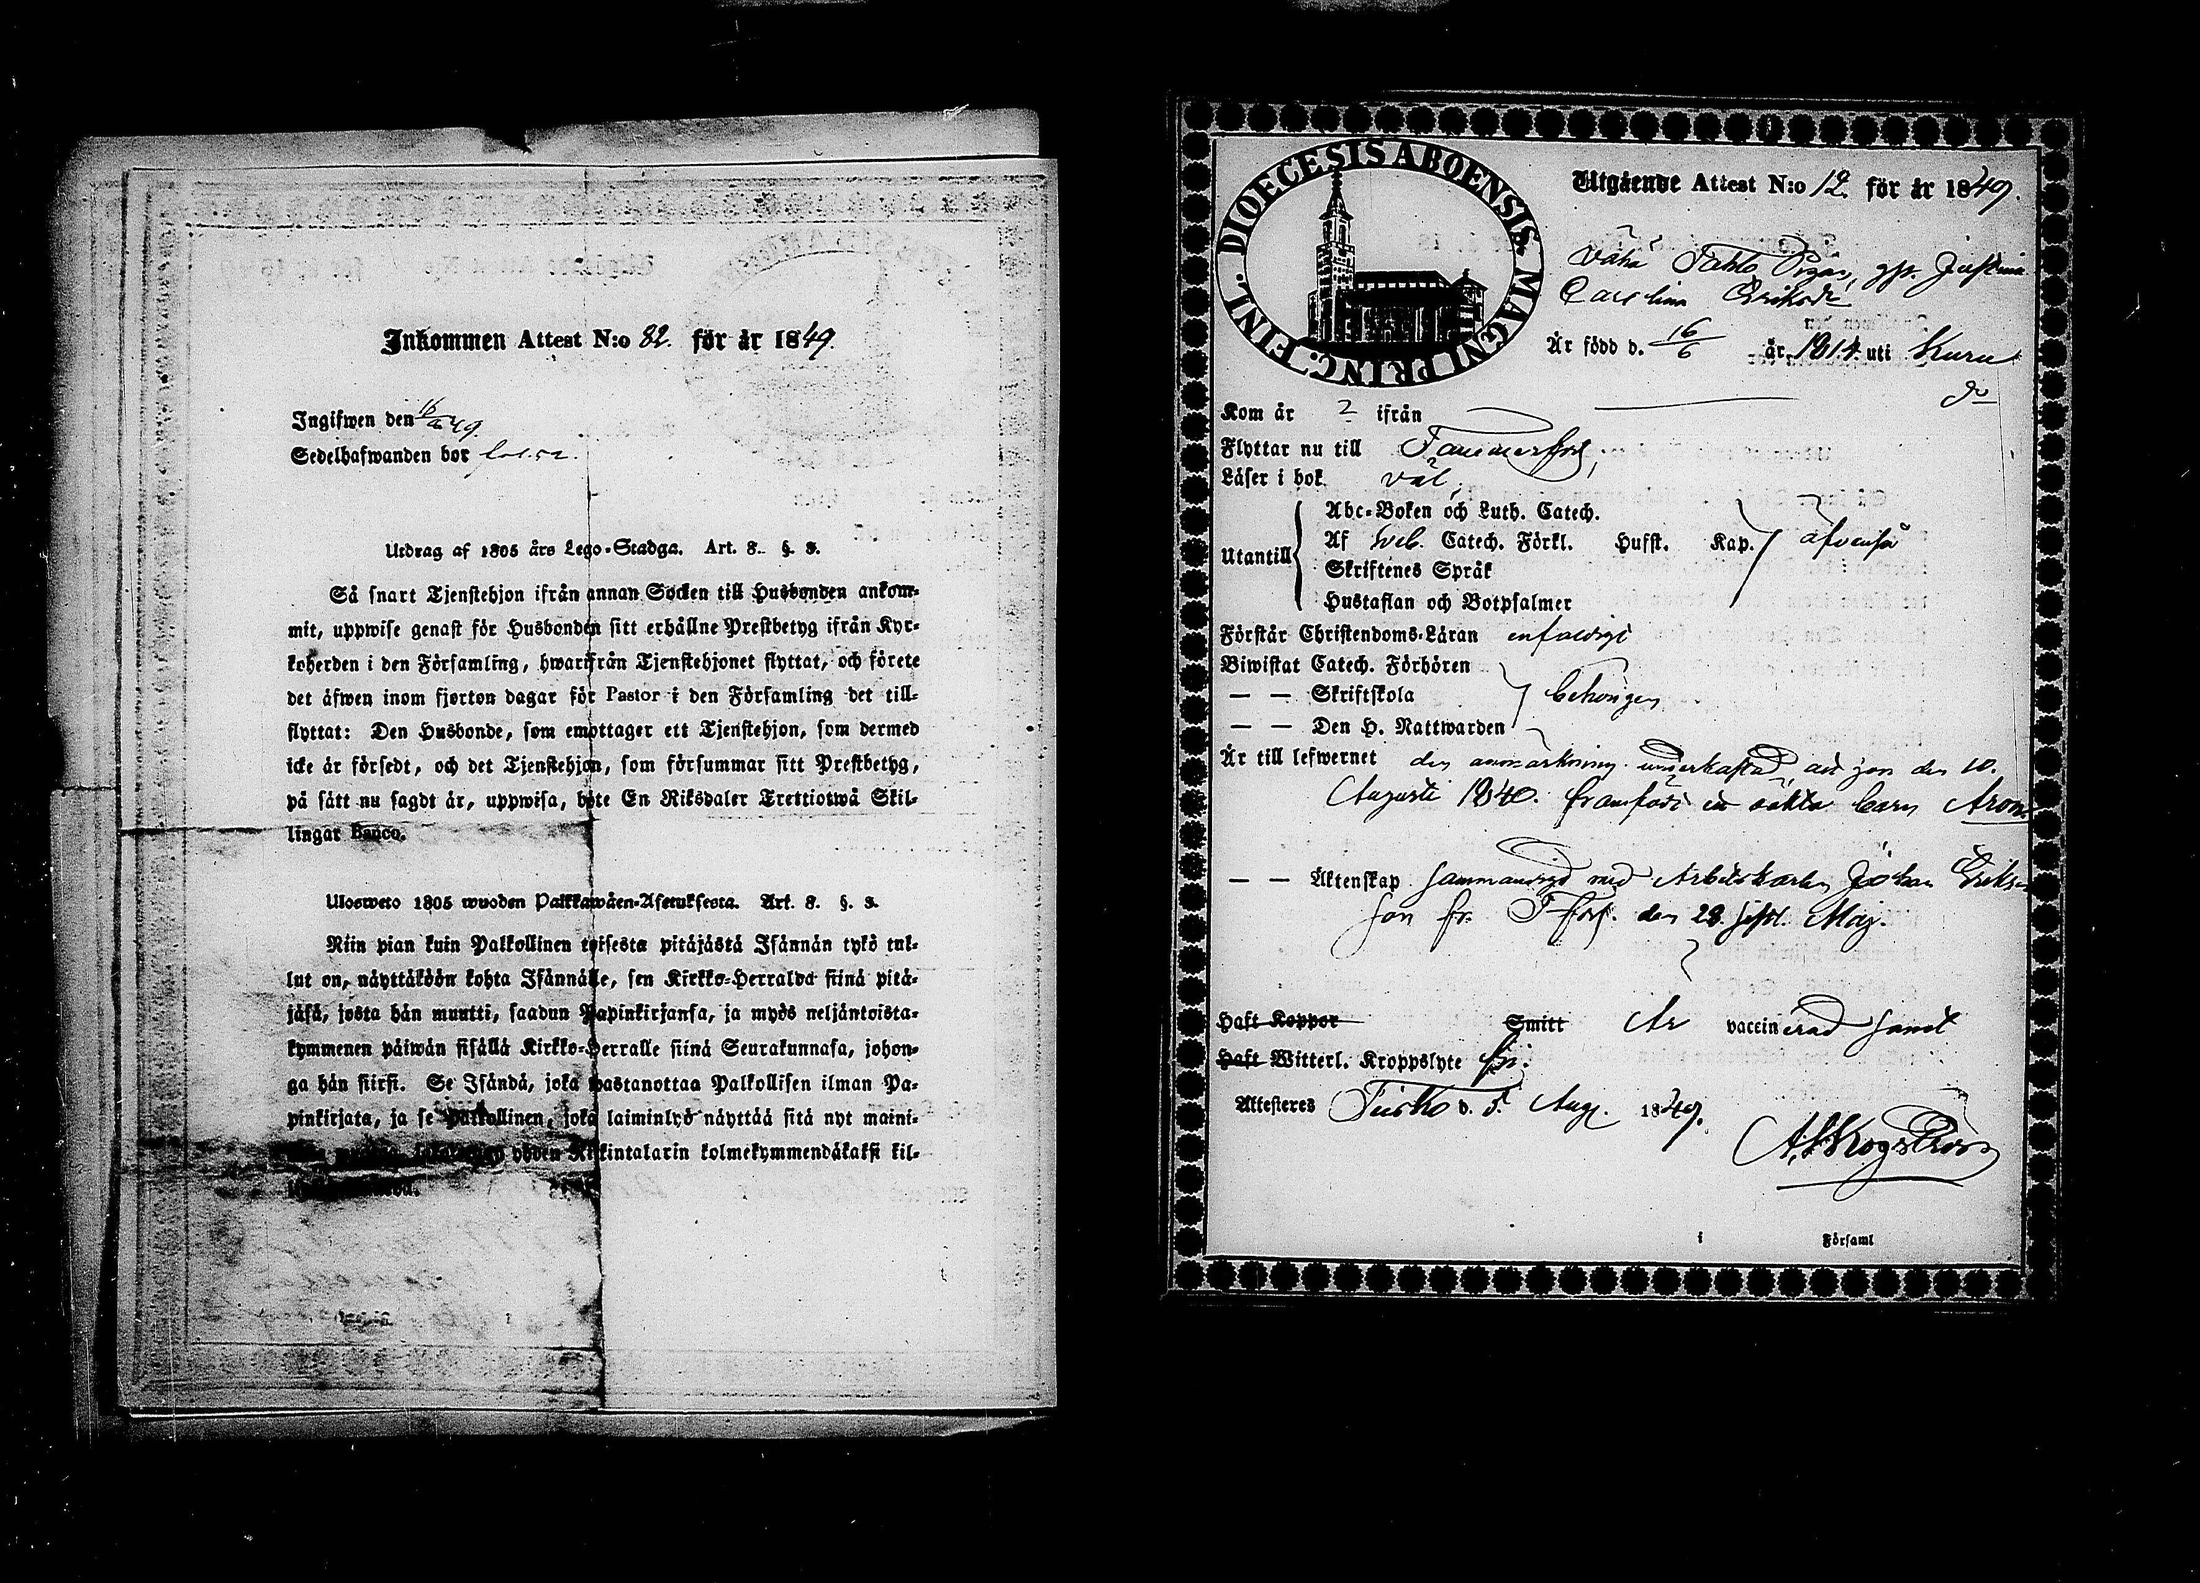 Inkommen Attest N:o 82. för år 1849.
Ingifwen den 16/8 49.
Sedelhafwanden bor
Utdrag af 1805 års Lego-Stadga. Art. 8. §. 3.
Så snart Tjenstehjon ifrån annan Socken till Husbonden ankom-
mit, uppwise genast för Husbonden sitt erhållne Prestbetyg ifrån Kyr-
koherden i den Församling, hwarifrån Tjenstehjonet flyttat, och förete
det äfwen inom fjorton dagar för Pastor i den Församling det till-
flyttat: Den Husbonde, som emottager ett Tjenstehjon, som dermed
icke är försedt, och det Tjenstehjon, som försummar sitt Prestbetyg,
på sätt nu sagdt är, uppwisa, böte En Riksdaler Trettiotwå Skil-
lingar Banco.
Ulosweto 1805 wuoden Palkkawäen-Asetuksesta. Art. 8. §. 3.
Niin pian kuin Palkollinen toisesta pitäjästä Isännän tykö tul-
lut on, näyttäköön kohta Isännälle, sen Kirkko-Herralda siinä pitä-
jäsä, josta hän muutti, saadun Papinkirjansa, ja myös neljäntoista-
kymmenen päiwän sisällä Kirkko-Herralle siinä Seurakunnasa, johon-
ga hän siirsi. Se Isändä, joka wastanottaa Palkollisen ilman Pa-
pinkirjata, ja se Palkollinen, joka laiminlyö näyttää sitä nyt maini-
yhden Riikintalarin kolmekymmendäkaksi kil-
DIOECESIS ABOENSIS MAGNI PRINC. FINL.
Utgående Attest N:o 12. för år 1849.
Wähä Pigan, Justina
Carolina Eriksdr
Är född d. 16/6 år 1814. uti Kuru
Kom år ? ifrån do
Flyttar nu till Tammerfors,
Läser i bok väl,
Abc-Boken och Luth. Catech.
Utantill Af Sveb. Catech. Förkl. Hufst. Kap. äfvenså
Skriftenes Språk
Hustaflan och Botpsalmer
Förstår Christendoms-Läran enfaldigt
Biwistat Catech. Förhören
— — Skriftskola behörigen
— — Den H. Nattwarden
Är till lefwernet den anmärkning underkastad, att hon den 10.
Augusti 1840. framfödt ett oäkta barn Aron.
— — Äktenskap sammanvigd med Arbetskarlen Johan Eriks-
son fr. T-fors. den 28 sistl. Maj.
Haft Koppor Smitt Är vaccinerad samt
Haft Witterl. Kroppslyte fri.
Attesteres d. Aug. 1849.
i Församl